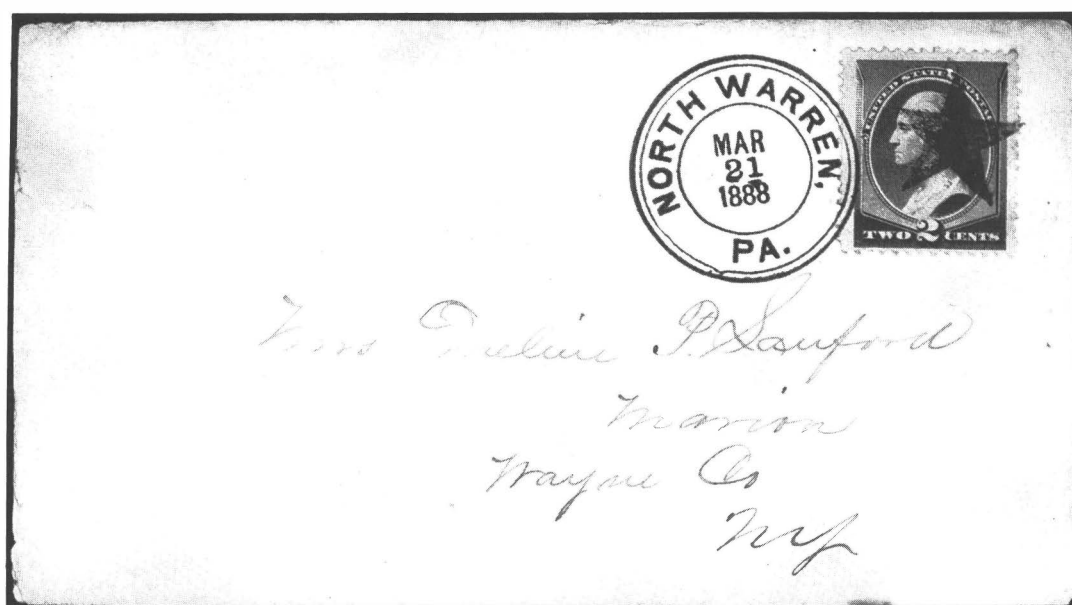 NORTH WARREN,
MAR
21
1888
PA.
UNITED STATES POSTAGE
TWO 2 CENTS
P. Sanford
Marion
Wayne Co
NY